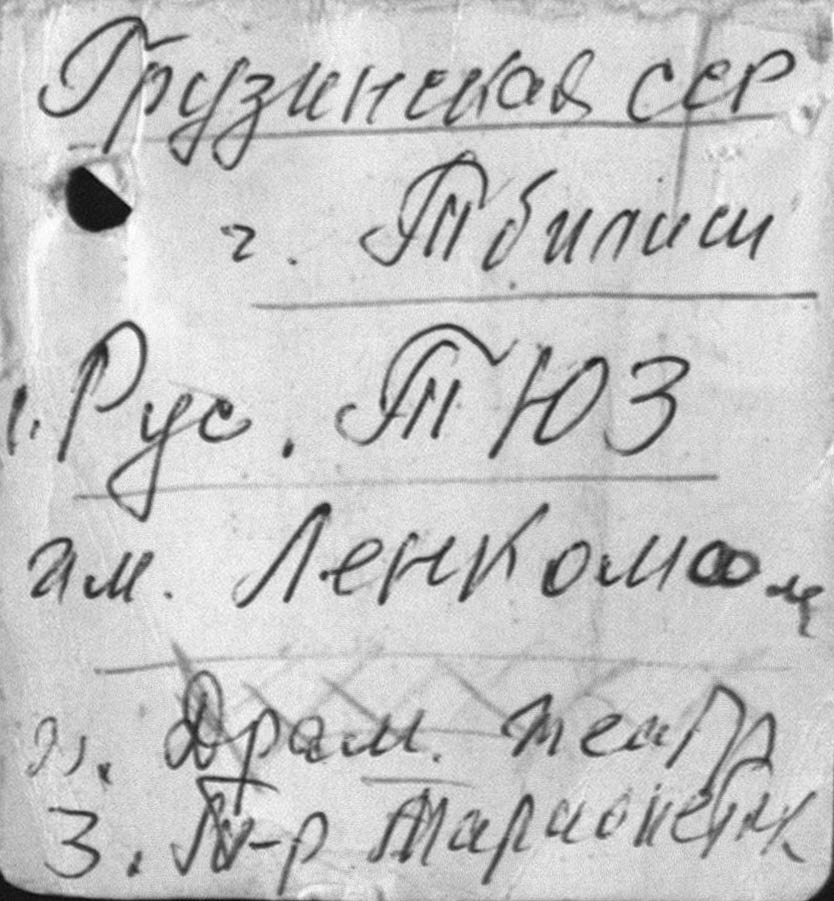 Грузинская ССР
г. Тбилиси
1. Рус. ТЮЗ
им. Ленкомола
2. Драм. театр
3. Т-р Марионеток